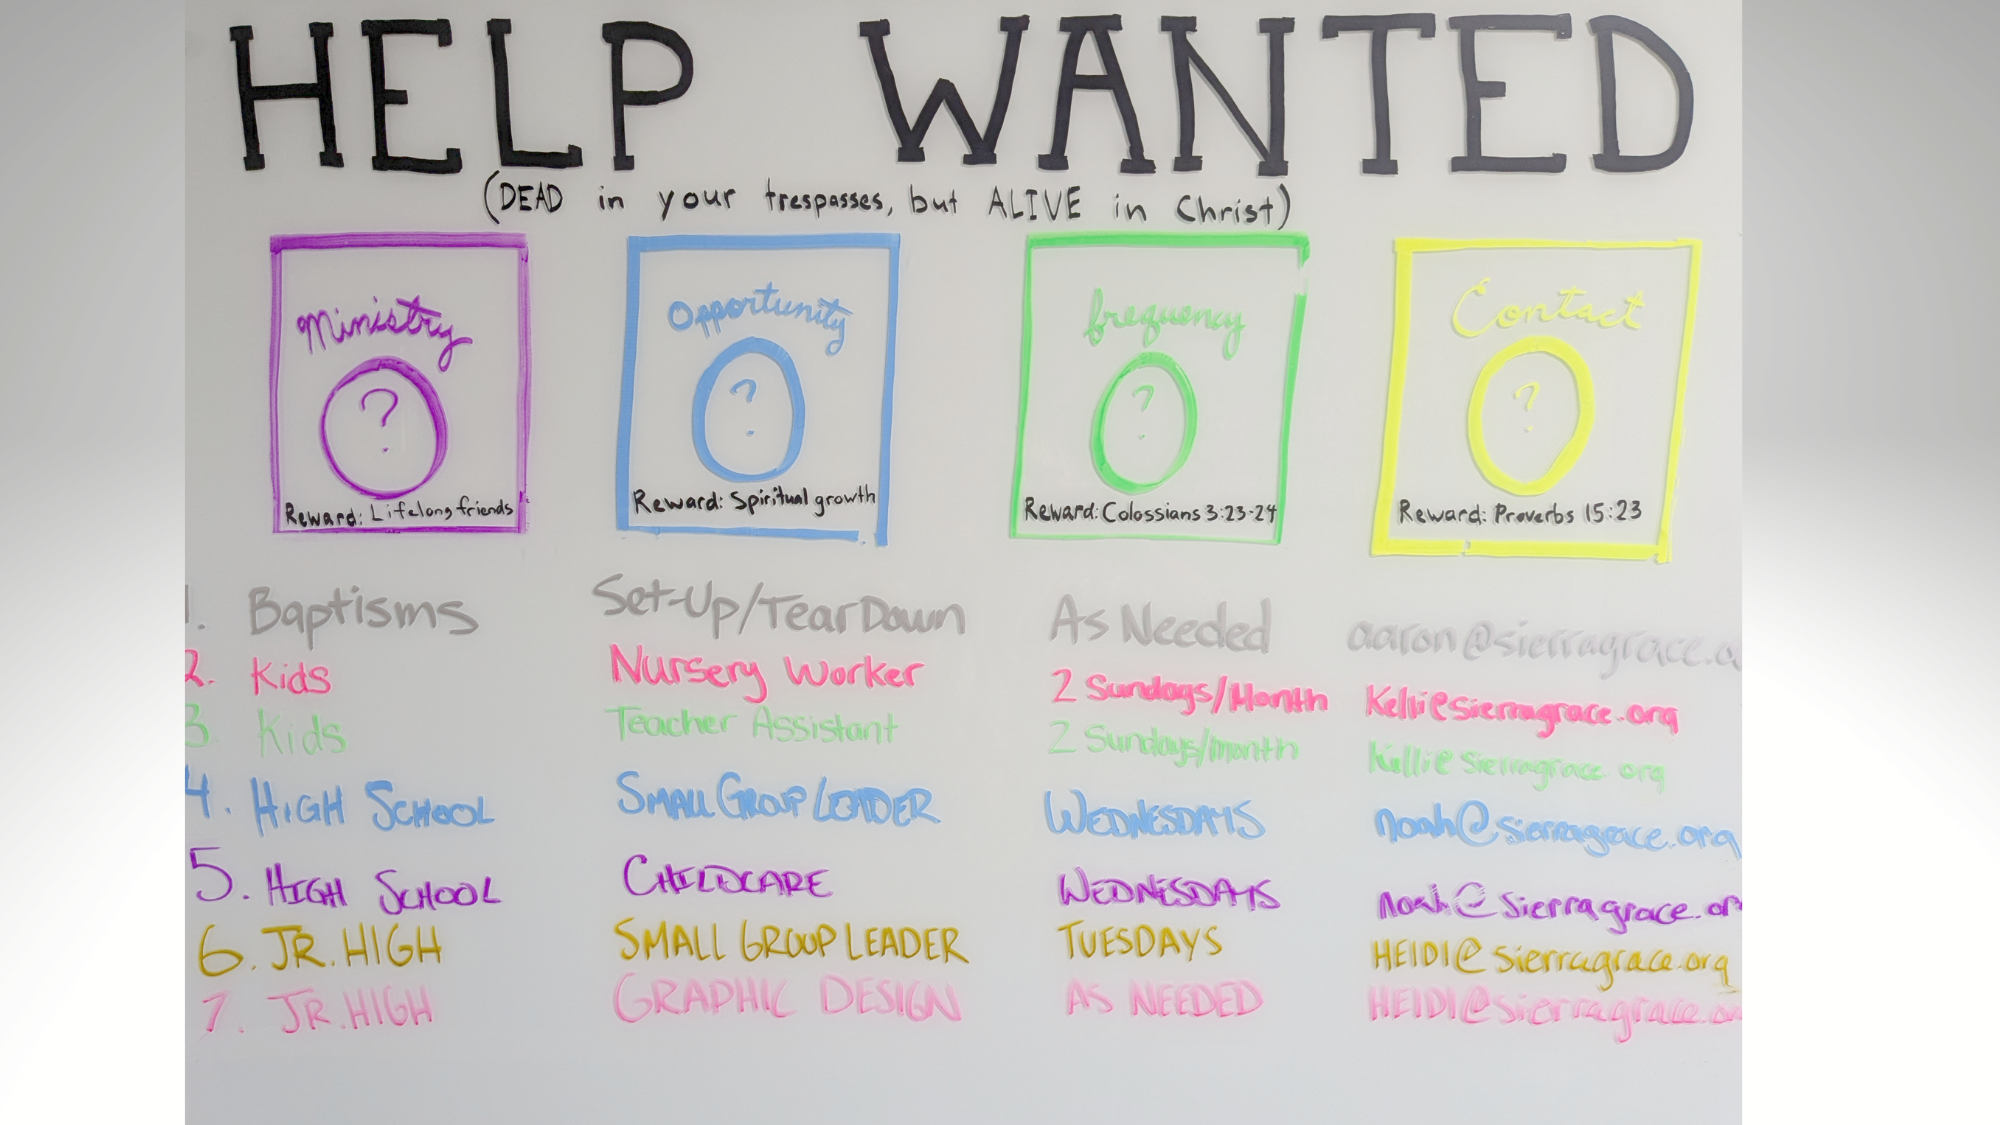 HELP WANTED
(DEAD in your trespasses, but ALIVE in Christ)
Ministry Opportunity frequency Contact
? ? ? ?
Reward: Lifelong friends Reward: Spiritual growth Reward: Colossians 3:23-24 Reward: Proverbs 15:23
1. Baptisms Set-Up/Tear Down As Needed aaron@sierragrace.o
2. Kids Nursery Worker 2 Sundays/Month Kelli@sierragrace.org
3. Kids Teacher Assistant 2 Sundays/month Kelli@sierragrace.org
4. HIGH SCHOOL SMALL GROUP LEADER WEDNESDAYS noah@sierragrace.org
5. HIGH SCHOOL CHILDCARE WEDNESDAYS noah@sierragrace.or
6. JR. HIGH SMALL GROUP LEADER TUESDAYS HEIDI@sierragrace.org
7. JR. HIGH GRAPHIC DESIGN AS NEEDED HEIDI@sierragrace.or